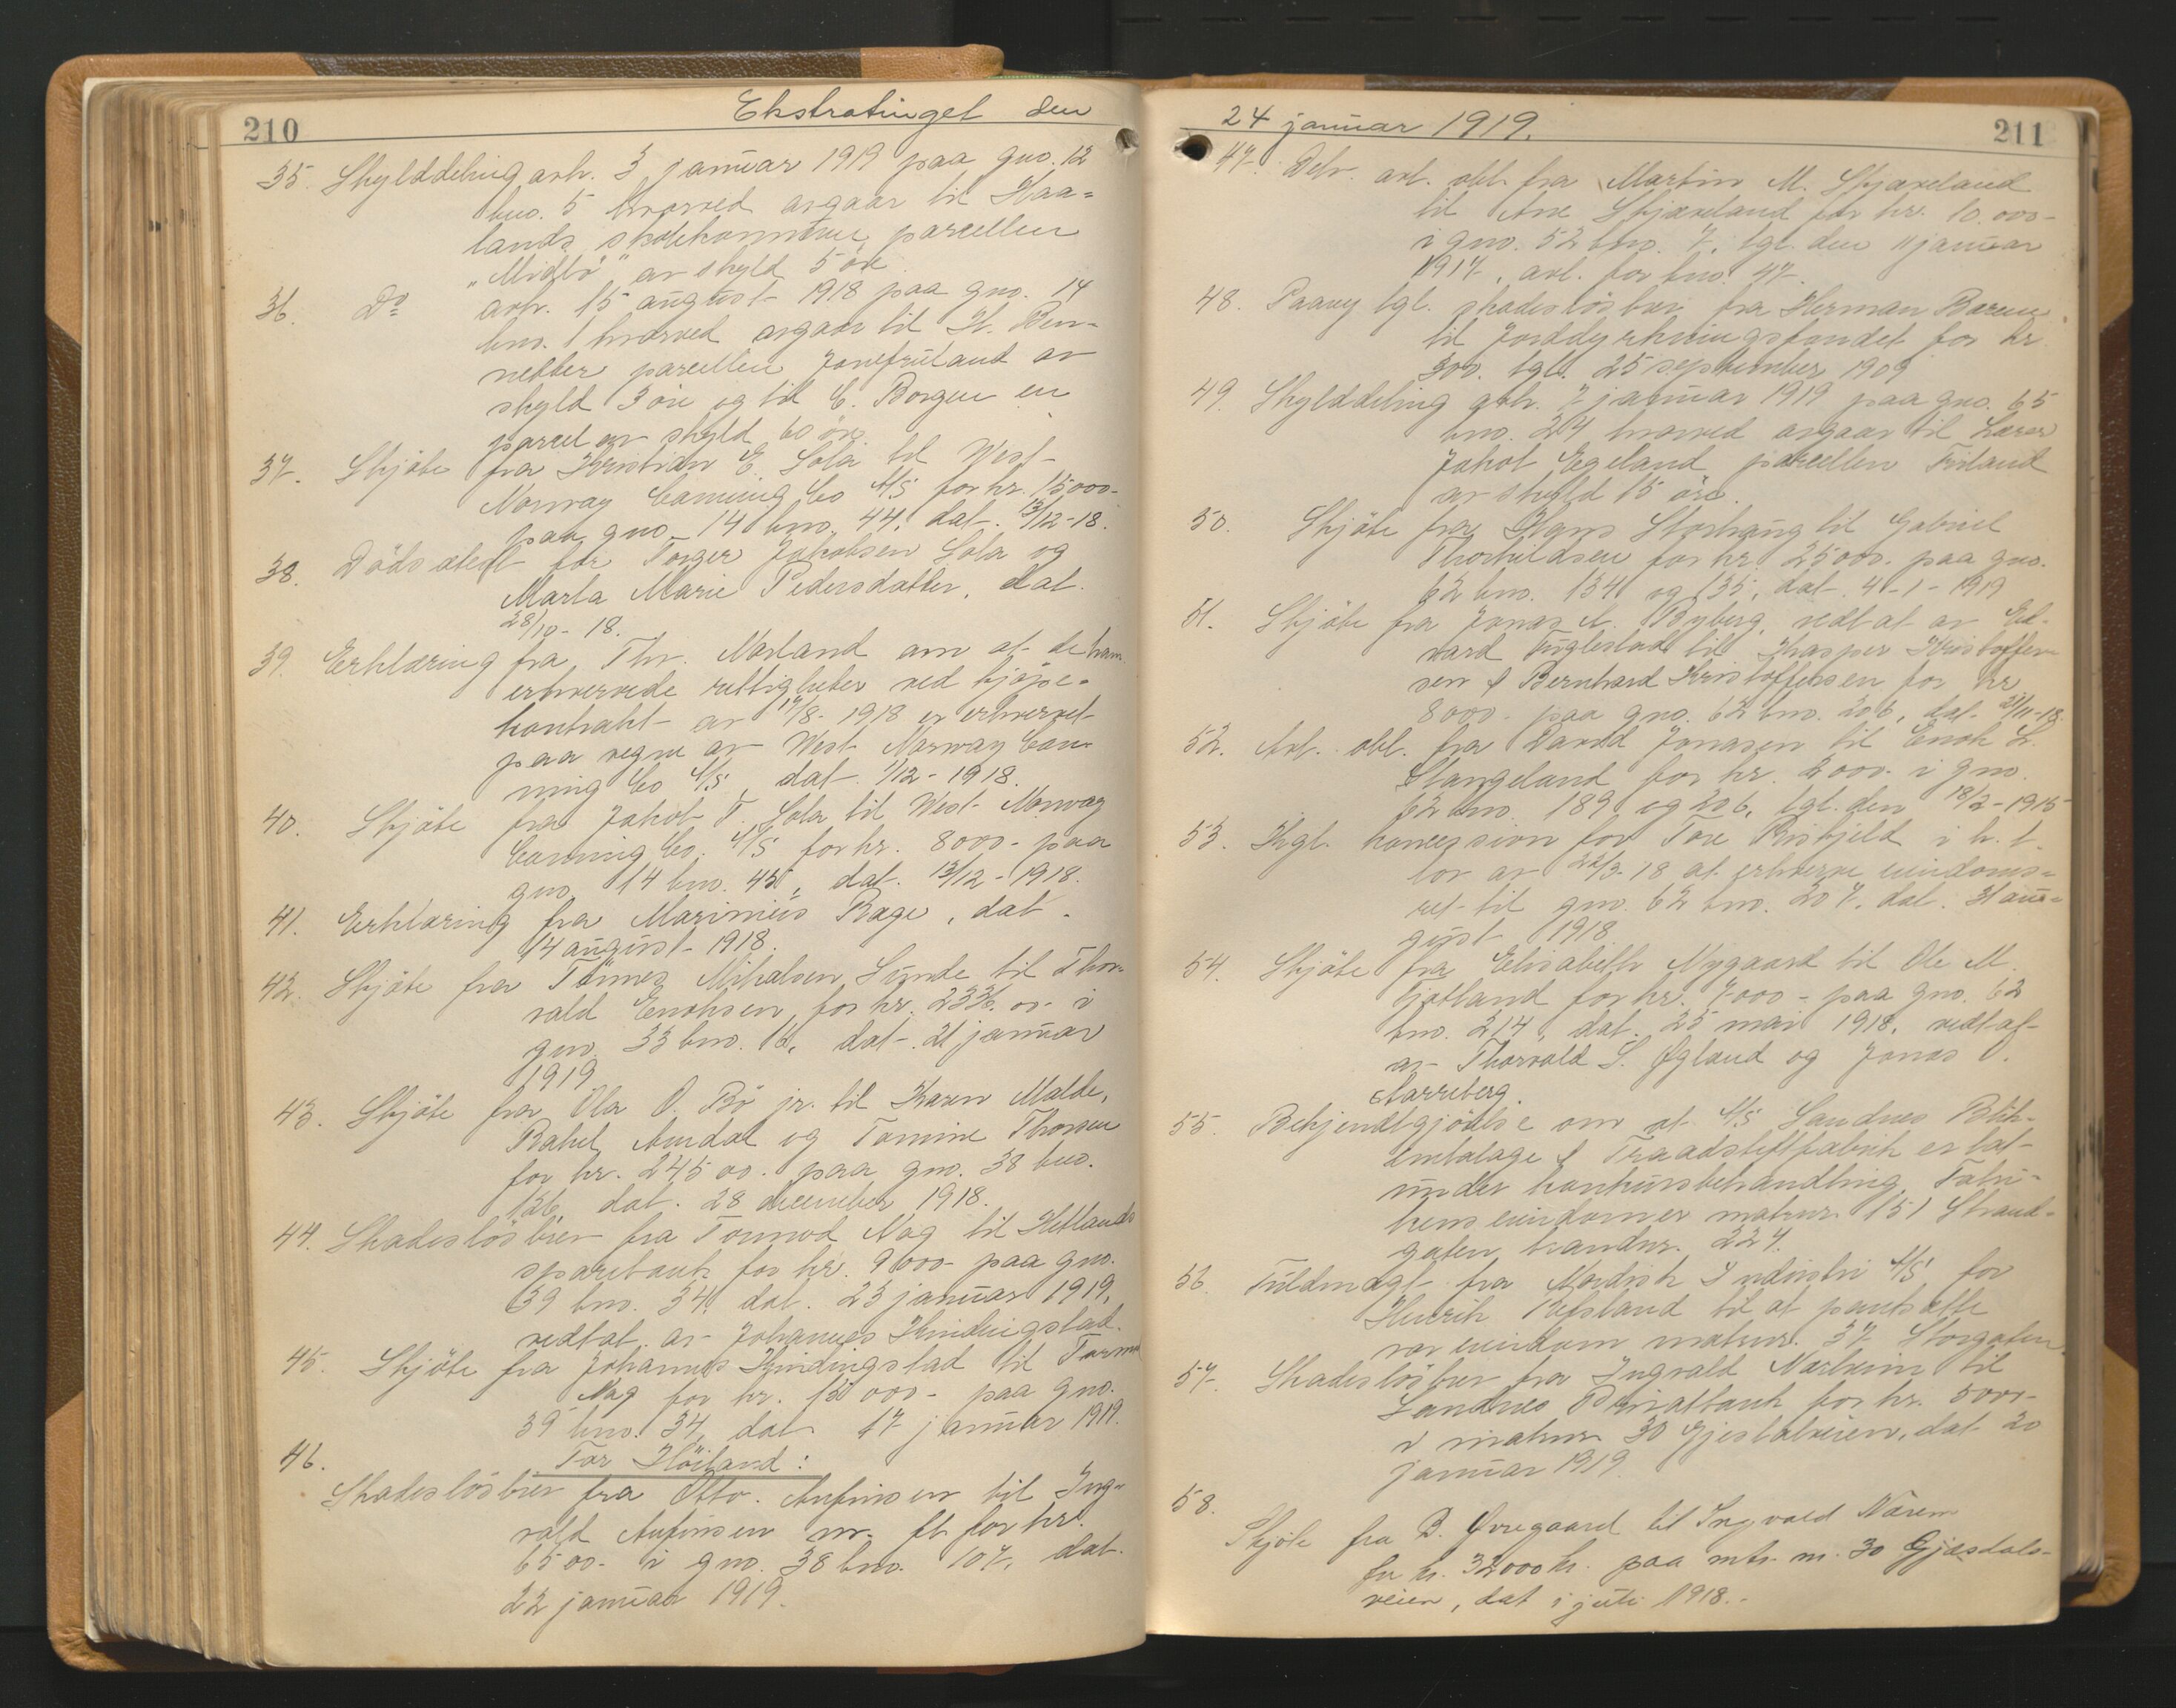 210
Ekstratinget den
35. Skylddeling avh. 3 januar 1919 paa gno. 12
bno. 5 hvorved avgaar til Haa-
lands skolekommune parcellen
"Midtbö" av skyld 5 öre.
36. Do avh. 15 august 1918 paa gno. 14
bno. 1 hvorved avgaar til H. Ben-
netter parcellen Jonefruland av
skyld 3 öre og til C. Borgen en
parcel av skyld 60 öre.
37. Skjöte fra Kristian E. Sola til West-
Norway Canning Co A/S for kr. 15000-
paa gno. 14 bno. 44, dat. 13/12-18.
38. Dödsatest for Torger Jakobsen Sola og
Marta Marie Pedersdatter, dat.
28/10-18.
39. Erklæring fra Thv. Narland om at de ham
erhvervede rettigheter ved kjöpe-
kontrakt av 17/8-1918 er erhvervet
paa vegne av West Norway Can-
ning Co A/S, dat. 1/12-1918.
40. Skjöte fra Jakob T. Sola til West Norway
Canning Co. A/S for kr. 8000- paa
gno. 14 bno. 45, dat. 13/12-1918.
41. Erklæring fra Marinius Rage, dat.
14 august 1918.
42. Skjöte fra Tönnes Mikalsen Lunde til Thor-
vald Enoksen for kr. 2336.00- i
gno. 33 bno. 12, dat. 21 januar
1919
43. Skjöte fra Ola O. Bö jr. til Karen Malde,
Rakel Aurdal og Tomine Thorsen
for kr. 24500. paa gno. 38 bno.
126, dat. 28 december 1918.
44. Skadeslösbrev fra Tormod Nag til Hetlands
sparebank for kr. 9000- paa gno.
39 bno. 34, dat. 23 januar 1919,
vedtat. av Johannes Kindingstad.
45. Skjöte fra Johannes Kindingstad til Tormod
Nag for kr. 15000- paa gno.
39 bno. 34, dat. 17 januar 1919.
46. For Höiland:
Skadeslösbrev fra Otto. Anfinsen til Ing-
vald Anfinsen m. fl. for kr.
6500- i gno. 38 bno. 107, dat.
22 januar 1919.
24 januar 1919.
211
47. Delv. avl. obl. fra Martin M. Skjæveland
til Ane Skjæveland for kr. 10.000-
i gno. 52 bno. 7, tgl. den 11 januar
1917, avl. for bno. 47.
48. Paany tgl. skadeslösbrev fra Herman
til Jorddyrkningsfondet for kr.
300. tgl. 25 september 1909
49. Skylddeling avh. 7 januar 1919 paa gno. 65
bno. 24 hvorved avgaar til Lærer
Jakob Egeland parcellen Friland
av skyld 15 öre.
50. Skjöte fra Hans Storhaug til Gabriel
Thorkildsen for kr. 25000. paa gno.
62 bno. 134 og 135, dat. 4-1-1919
51. Skjöte fra Jonas A. Byberg, vedtat av Ed-
vard Fuglestad til Kasper Kristoffer-
sen & Bernhard Kristoffersen for kr.
8000- paa gno. 62 bno. 206, dat. 21/11-18.
52. Avl. obl. fra David Jonasen til Enok L.
Stangeland for kr. 2000- i gno.
62 bno. 189 og 206, tgl. den 18/2-1915
53. Kgl. koncession for Tore Riskjeld i h. t.
lov av 22/3-18 at erhverve eiendoms-
ret til gno. 62 bno. 207, dat. 31 au-
gust 1918
54. Skjöte fra Elisabeth Nygaard til Ole M.
Tjotland for kr. 7000- paa gno. 62
bno. 214, dat. 25 mai 1918, vedtat
av Thorvald S. Ogland og Jonas O.
Aarreberg.
55. Bekjendtgjörelse om at A/S Sandnes Blik-
emballage & Traadstiftfabrik er tat
under konkursbehandling. Fabri-
kens eiendom er matrnr. 151 Strand-
gaten, brandnr. 227.
56. Fuldmagt fra Nordisk Industri A/S for
Henrik Refsland til at pantsætte
vor eiendom matrnr. 37 Storgaten.
57. Skadeslösbrev fra Ingvald Nærheim til
Sandnes Privatbank for kr. 5000-
i matrnr. 30 Gjesdalveien, dat. 20
januar 1919.
58.
Skjöte fra B. Ovregaard til Ingvald Nærem
for kr. 32000 kr. paa mtr. nr. 30 Gjesdals-
veien, dat i juli 1918.-